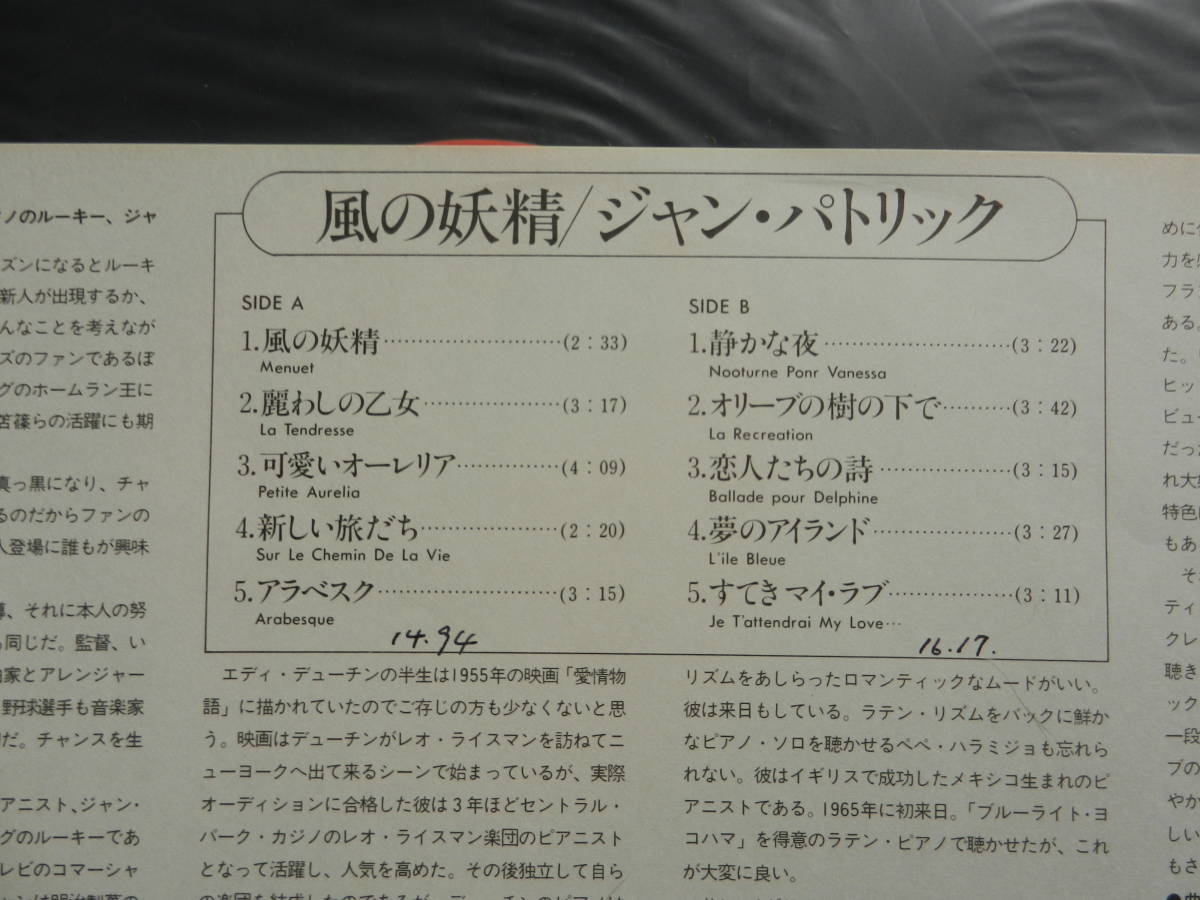 風の妖精/ジャン・パトリック
SIDE A
1.風の妖精……………………(2：33)
Menuet
2.麗わしの乙女………………(3：17)
La Tendresse
3.可愛いオーレリア……………(4：09)
Petite Aurelia
4.新しい旅だち………………(2：20)
Sur Le Chemin De La Vie
5.アラベスク……………………(3：15)
Arabesque
14.94
SIDE B
1.静かな夜……………………(3：22)
Nooturne Ponr Vanessa
2.オリーブの樹の下で………(3：42)
La Recreation
3.恋人たちの詩………………(3：15)
Ballade pour Delphine
4.夢のアイランド………………(3：27)
L'ile Bleue
5.すてきマイ・ラブ……………(3：11)
Je T'attendrai My Love…
16.17.
ノのルーキー、ジャ
ズンになるとルーキ
新人が出現するか、
んなことを考えなが
ズのファンであるぼ
グのホームラン王に
笘篠らの活躍にも期
真っ黒になり、チャ
るのだからファンの
人登場に誰もが興味
導、それに本人の努
も同じだ。監督、い
曲家とアレンジャー
野球選手も音楽家
だ。チャンスを生
アニスト、ジャン・
グのルーキーであ
レビのコマーシャ
エディ・デューチンの半生は1955年の映画「愛情物
語」に描かれていたのでご存じの方も少なくないと思
う。映画はデューチンがレオ・ライスマンを訪ねてニ
ューヨークへ出て来るシーンで始まっているが、実際
オーディションに合格した彼は3年ほどセントラル・
パーク・カジノのレオ・ライスマン楽団のピアニスト
となって活躍し、人気を高めた。その後独立して自ら
の楽団を結成したのであるが、デューチンのピアノは
リズムをあしらったロマンティックなムードがいい。
彼は来日もしている。ラテン・リズムをバックに鮮か
なピアノ・ソロを聴かせるペペ・ハラミジョも忘れら
れない。彼はイギリスで成功したメキシコ生まれのピ
アニストである。1965年に初来日。「ブルーライト・ヨ
コハマ」を得意のラテン・ピアノで聴かせたが、これ
が大変に良い。
めに
力を
フラ
ある。
た。
ヒッ
ビュー
だっ
れ大
特色
もあ
そ
ティ
クレ
聴き
ック
一段
ブの
やか
しい
もさ